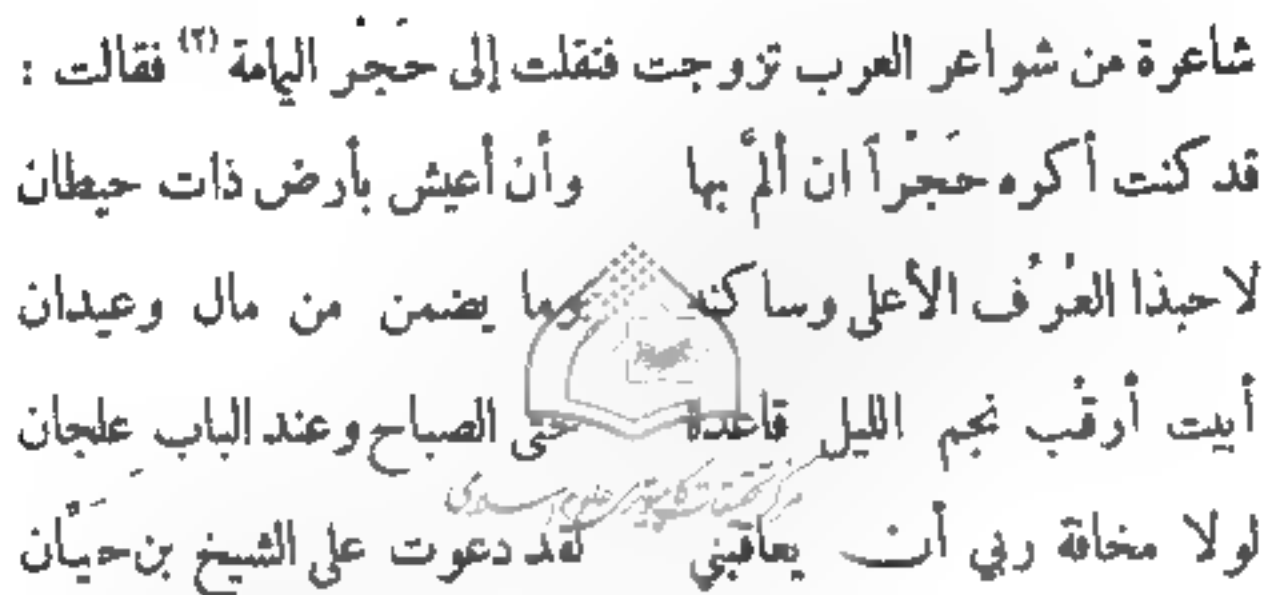 شاعرة من شواعر العرب تزوجت فنقلت إلى حَجْر اليمامة (٢) فقالت :
قد كنت أكره حَجْراً ان ألمَّ بها وأن أعيش بأرض ذات حيطان
لا حبذا العُرُف الأعلى وساكنه وما يضمن من مال وعيدان
أبيت أرقُب نجم الليل قاعدة حتى الصباح وعند الباب عِلجان
لولا مخافة ربي أن يعاقبني لقد دعوت على الشيخ بن حَيّان
مركز تحقیقات کامپیوتری علوم اسلامی